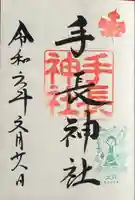 手長神社
手長
神社
令和六年
月廿八日